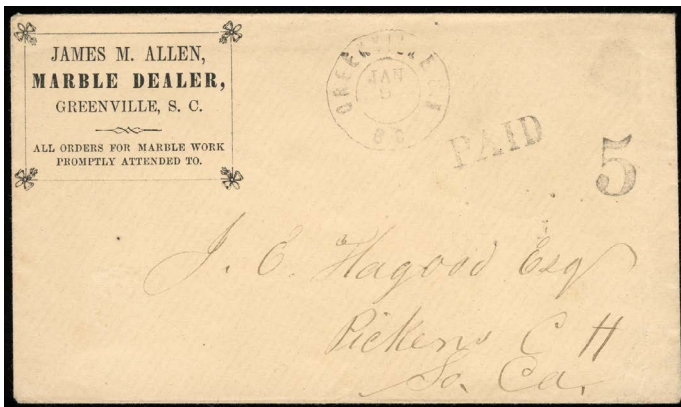 JAMES M. ALLEN,
MARBLE DEALER,
GREENVILLE, S. C.
ALL ORDERS FOR MARBLE WORK
PROMPTLY ATTENDED TO.
JAN
PAID
5
J. C. Hagood Esq
Pickens C H
So. Ca.